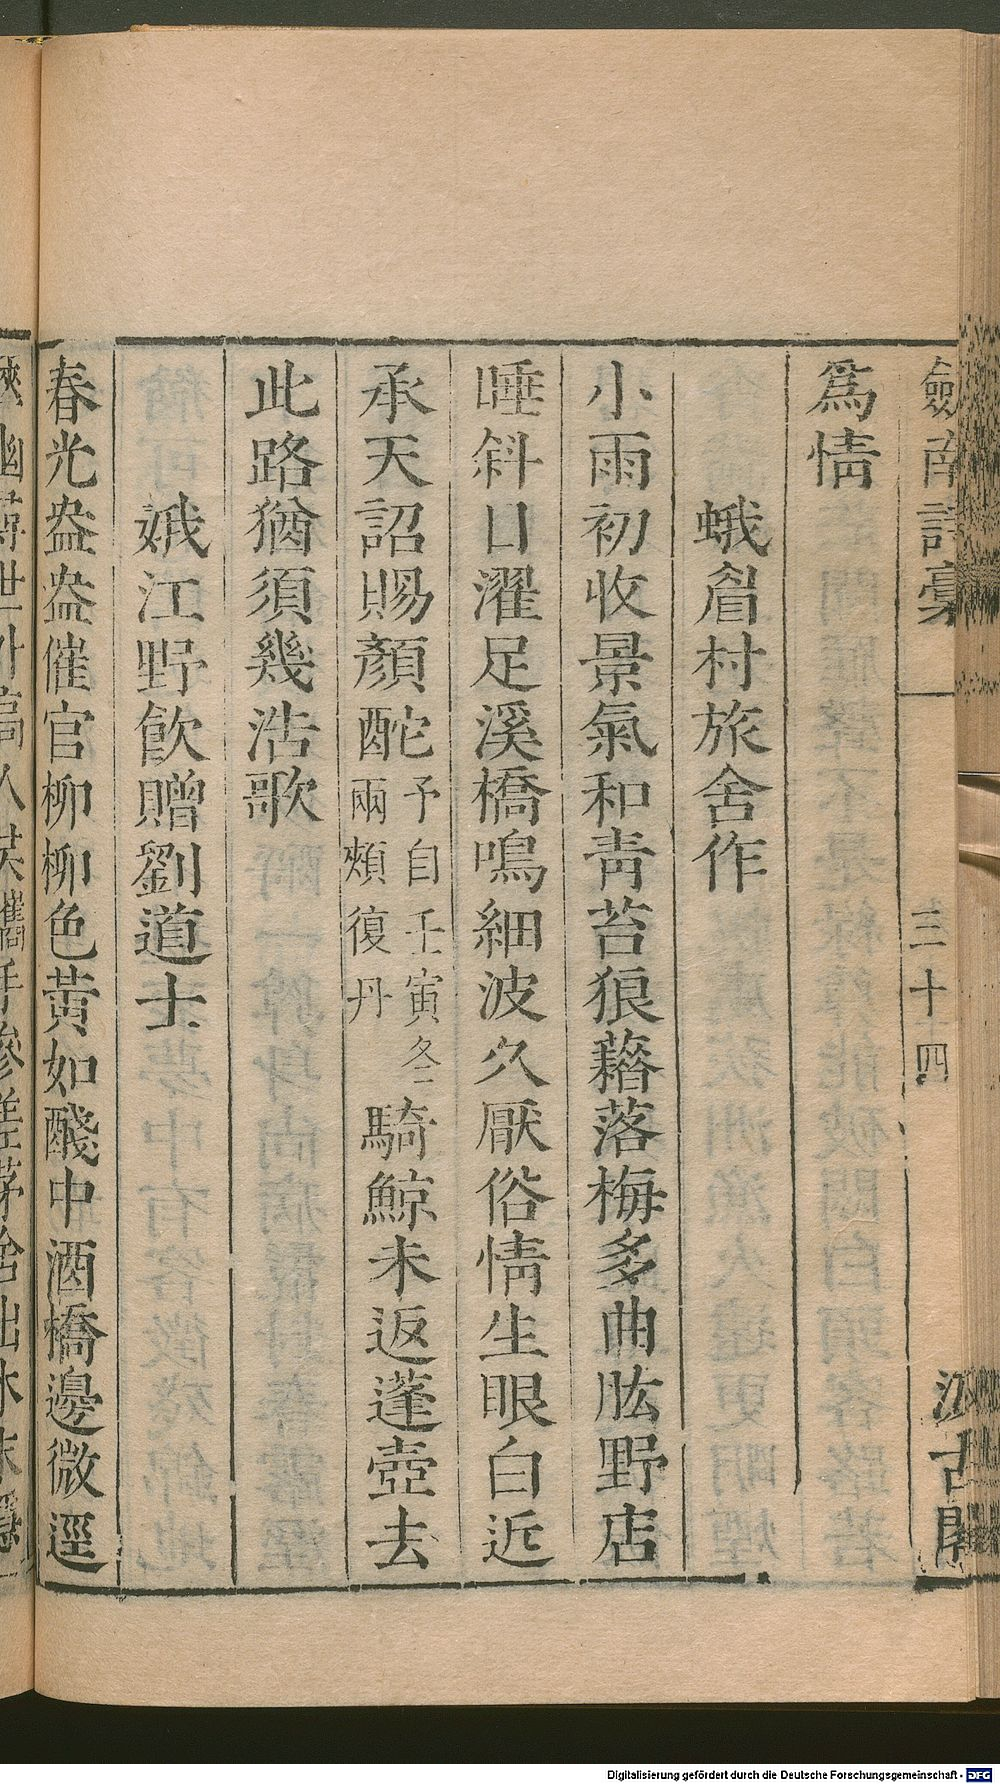 劒南詩稾 三十四 汲古閣
爲情
蛾眉村旅舍作
小雨初收景氣和靑苔狼藉落梅多曲肱野店
睡斜日濯足溪橋鳴細波久厭俗情生眼白近
承天詔賜顏酡予自壬寅冬兩頰復丹騎鯨未返蓬壺去
此路猶須幾浩歌
娥江野飮贈劉道士
春光盎盎催官柳柳色黃如醆中酒橋邊微逕
Digitalisierung gefördert durch die Deutsche Forschungsgemeinschaft - DFG